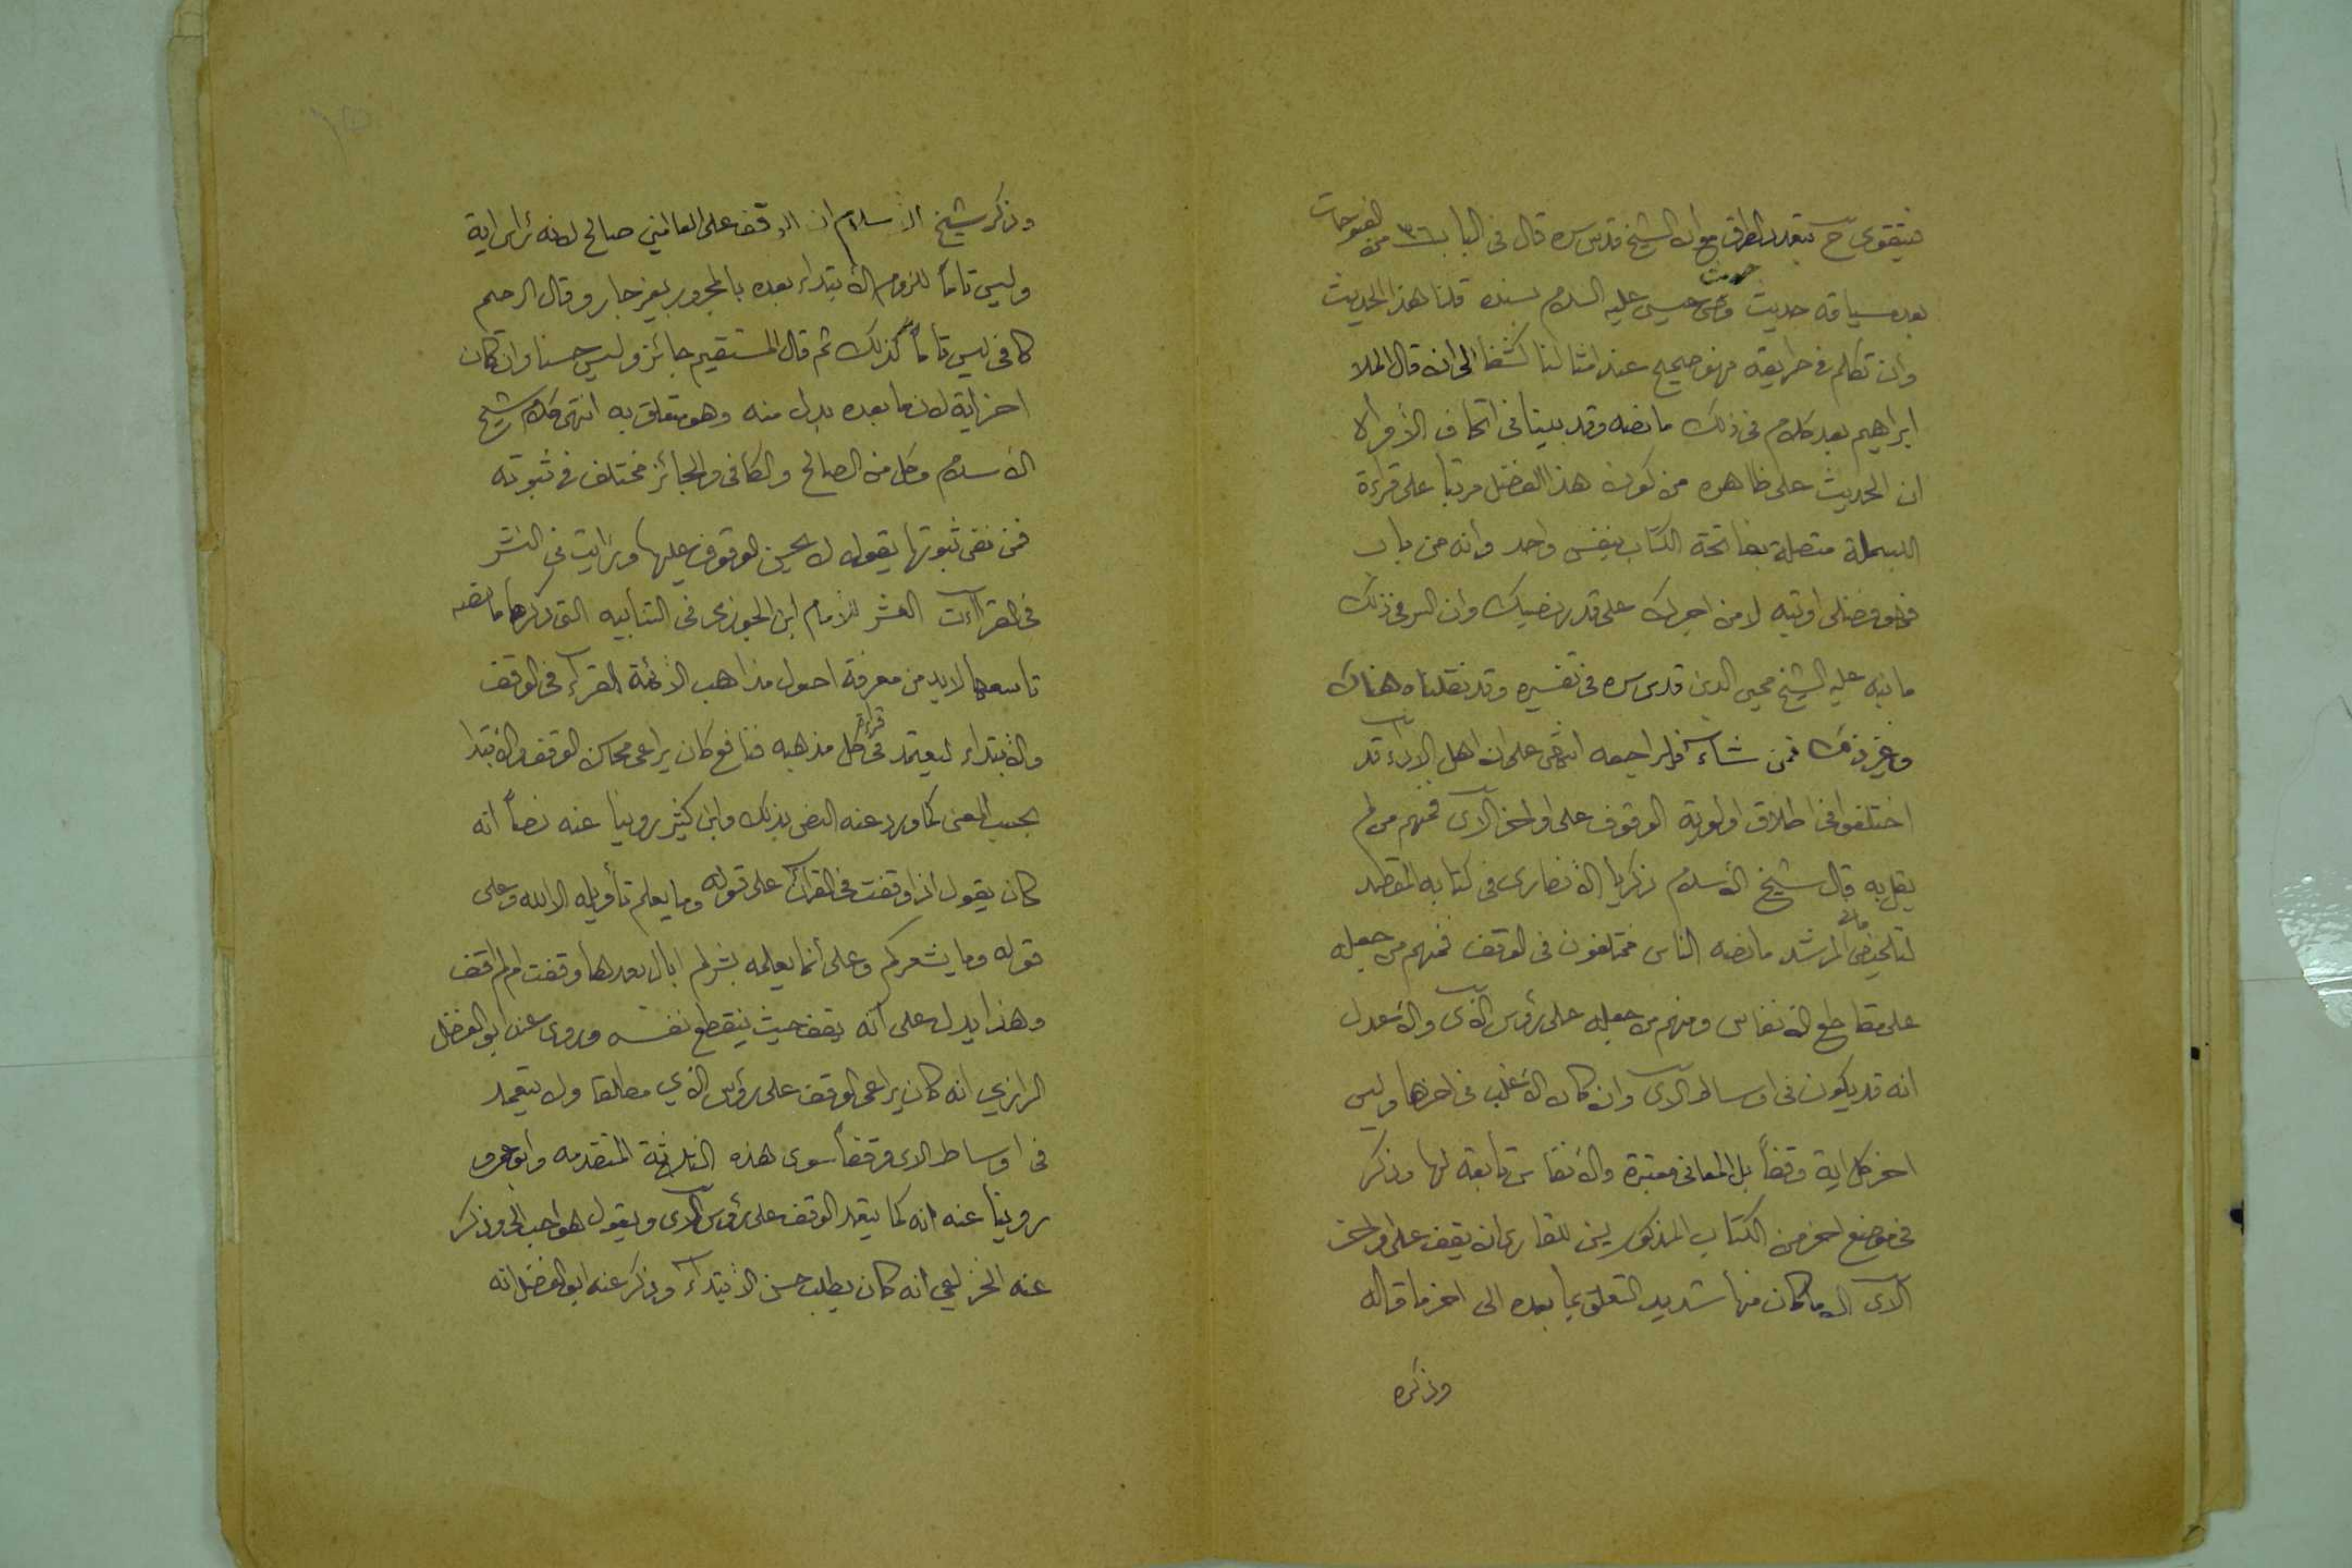 فيتقوى ح بتعدد الطرق مع ان الشيخ قدس سره قال في الباب ٣٦ من الفتوحات
بعد سياقه حديث وصى عيسى عليه السلام بسنده قلنا هذا الحديث
وان تكلم في طريقه فهو صحيح عند امثالنا كشفا الى ان قال الملا
ابراهيم بعد كلام في ذلك ما نصه وقد بينا في اتحاف
ان الحديث على ظاهره من كون هذا الفضل مرتبا على قراءة
البسملة متصلة بفاتحة الكتاب بنفس واحد وانه من باب
فهو فضلى اوتيه لا من اجرك على قدر نصيبك وان السر في ذلك
ما نبه عليه الشيخ محيي الدين قدس سره في تفسيره وقد نقلناه هناك
وغير ذلك فمن شاء فليراجعه انتهى على ان اهل الاداء قد
اختلفوا في اطلاق اولوية الوقوف على اواخر الآى فمنهم من لم
يقل به قال شيخ الأسلام زكريا الأنصارى في كتابه المقصد
لتلخيص ما في المرشد ما نصه الناس مختلفون في الوقف فمنهم من جعله
على مقاطع الأنفاس ومنهم من جعله على رؤس الآى والأعدل
انه قد يكون في اوساط الآى وان كان الأغلب في اخرها وليس
اخر كل اية وقفاً بل المعانى معتبرة والأنفاس تابعة لها وذكر
في موضع اخر من الكتاب المذكور يسن للقارى ان يقف على اواخر
الآى الا ما كان منها شديد التعلق بما بعده الى اخر ما قاله
وذكره
وذكر شيخ الأسلام ان الوقف على العالمين صالح لانه راس اية
وليس تاماً للزوم الأبتداء بعده بالمجرور بغير جار وقال الرحيم
كافي ليس تاماً كذلك ثم قال المستقيم جائز وليس حسنا وان كان
اخر اية لان ما بعده بدل منه وهو متعلق به انتهى كلام شيخ
الأسلام وكل من الصالح والكافى والجائز مختلف في ثبوته
فمن نفى ثبوتها يقول لا يحسن الوقوف عليها ورايت في النشر
في القراآت العشر للأمام ابن الجوزى في التنابيه التى ذكرها ما نصه
تاسعها لا بد من معرفة اصول مذاهب الأئمة القراء في الوقف
والأبتداء ليعتمد في قراءة كل مذهبه فنافع كان يراعى محاسن الوقف والأبتدا
بحسب المعنى كما ورد عنه النص بذلك وابن كثير روينا عنه نصاً انه
كان يقول اذا وقفت في القرآن على قوله وما يعلم تأويله الا الله وعلى
قوله وما يشعركم وعلى أنما يعلمه بشر لم ابال بعدها وقفت ام لم اقف
وهذا يدل على أنه يقف حيث ينقطع نفسه وروى عنه ابو الفضل
الرازي انه كان يراعى الوقف على رؤس الآي مطلقا ولا يتعمد
في اوساط الاى وقفاً سوى هذه الثلاثة المتقدمه وابو عمرو
روينا عنه انه كان يتعمد الوقف على رؤس الآى ويقول هو احب الي وذكر
عنه الخزاعي انه كان يطلب حسن الأبتداء وذكر عنه ابو الفضل انه